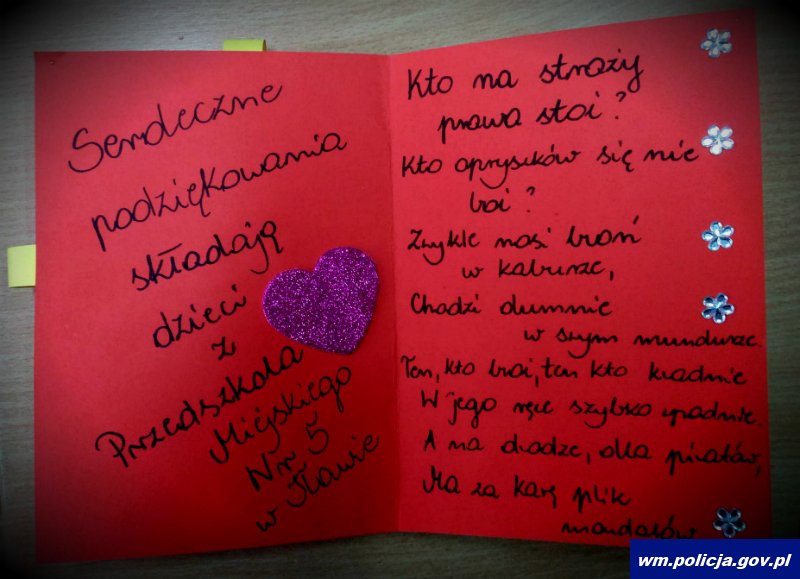 Serdeczne
podziękowania
składają
dzieci
z
Przedszkola
Miejskiego
Nr 5
w Iławie
Kto na straży
prawa stoi?
Kto opryszków się nie
boi?
Zwykle nosi broń
w kaburze,
Chodzi dumnie
w swym mundurze.
Ten, kto broi, ten kto kradnie
W jego ręce szybko wpadnie.
A na drodze, dla piratów,
Ma za karę plik
mandatów
wm.policja.gov.pl